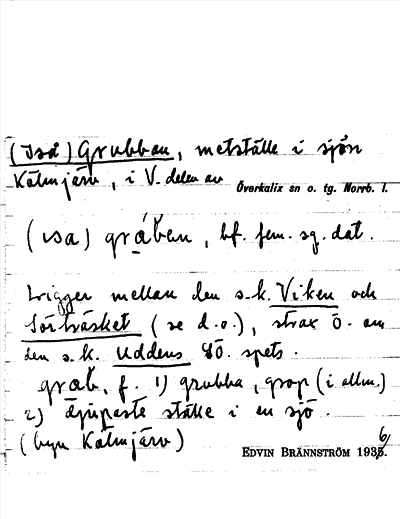 (iså) Grubban, metställe i sjön
Kälmjärv, i V. delen av
Överkalix sn o. tg. Norrb. l.
(ısa) grában, bf. fem. sg. dat.
Ligger mellan den s.k. Viken och
Sörträsket (se d.o.), strax Ö. om
den s.k. Uddens SÖ. spets.
grab, f. 1) grubba, grop (i allm.)
2) djupaste ställe i en sjö.
(byn Kälmjärv)
EDVIN BRÄNNSTRÖM 1936.